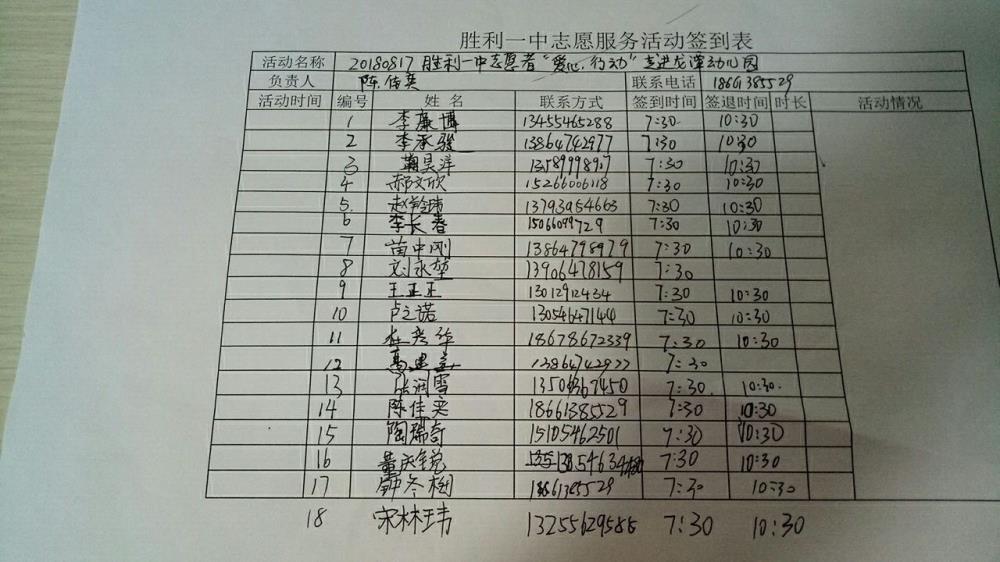 胜利一中志愿服务活动签到表
活动名称 20180817 胜利一中志愿者“爱心.行动”走进龙泽幼儿园
负责人 陈佳奕 联系电话 18661385529
活动时间 编号 姓名 联系方式 签到时间 签退时间 时长 活动情况
1 李廉博 13455465288 7:30 10:30
2 李承骏 13864742977 7:30 10:30
3 昊洋 7:30 10:30
4 郝文欣 15266006118 7:30 10:30
5. 赵 13793954663 7:30 10:30
6 李长春 15066099729 7:30 10:30
7 苗中刚 13864798979 7:30 10:30
8 刘永堃 13906478159 7:30
9 王正正 13012912434 7:30 10:30
10 卢之诺 13054647144 7:30 10:30
11 杜奕华 18678672339 7:30 10:30
12 13864742977 7:30
13 张润雪 7:30 10:30.
14 陈佳奕 18661385529 7:30 10:30
15 陶瑞奇 15105462501 7:30 10:30
16 董庆锐 7:30 10:30
17 钟冬栩 7:30 10:30
18 宋林玮 13255629585 7:30 10:30